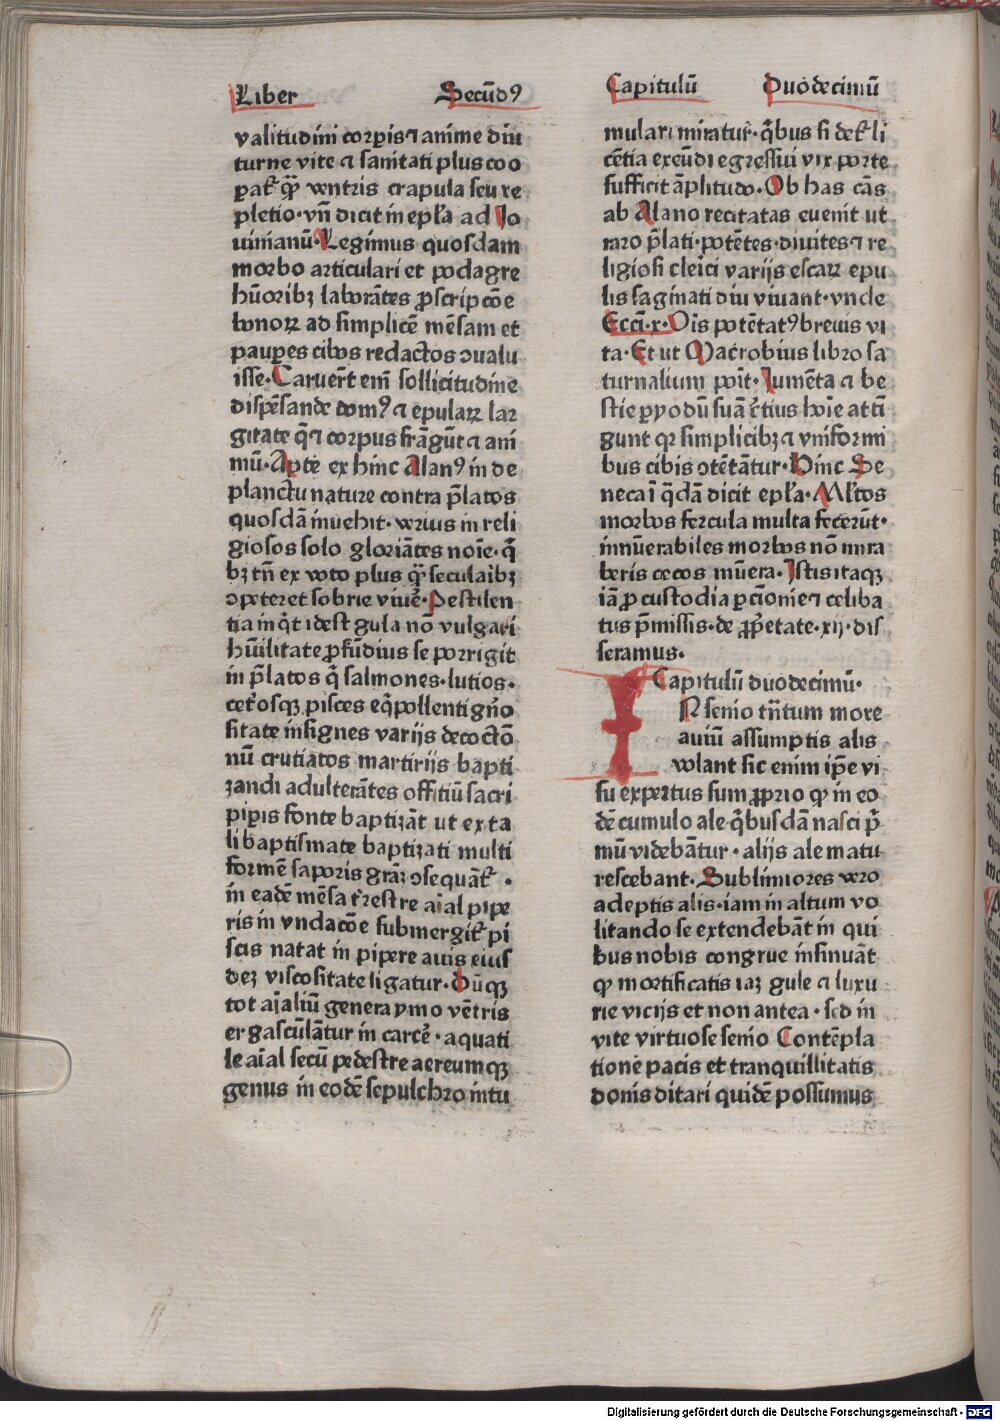 Liber Secūdꝰ
valitudini corꝑis ⁊ anime diu
turne vite ⁊ sanitati plus coo
ꝑat᷑ qꝫ̄ ventris crapula seu re
pletio· vn̄ dicit in epl̄a ad Jo
uinianū· Legimus quosdam
morbo articulari et podagre
hūoribꝫ laborātes ꝓscripcōe
bonoꝝ ad simplicē mēsam et
pauꝑes cibos redactos ↄualu
isse· Caruer̄t em̄ sollicitudine
dispēsande domꝰ ⁊ epulaꝝ lar
gitate q̄ ⁊ corpus frāgūt ⁊ ani
mū· Apte ex hinc Alanꝰ in de
planctu nature contra p̄latos
quosdā inuehit· verius in reli
giosos solo gloriātes noīe· q̄
bꝫ tn̄ ex voto plus qꝫ̄ seculaībꝫ
ↄpeteret sobrie viue᷑· Pestilen
tia inq̄t idest gula nō vulgari
hūilitate ꝓfūdius se porrigit
in p̄latos q̄ salmones· lutios·
cet᷑osqꝫ pisces eq̄pollenti gn̄o
sitate insignes varijs decoctō
nū crutiatos martirijs bapti
zandi adulterātes offitiū sacri
piꝑis fonte baptizāt ut ex ta
li baptismate baptizati multi
formē saporis grāꝫ ↄsequāt᷑ ·
in eadē mēsa t᷑restre aīal pipe
ris in vndacōe submergit᷑ pi
scis natat in pipere auis eius
deꝫ viscositate ligatur· Dūqꝫ
tot aīaliū genera ymo vētris
ergasculātur in carce᷑· aquati
le aīal secū pedestre aereumqꝫ
genus in eodē sepulchro intu
Capitulū Duodecimū
mulari miratur· q̄bus si det᷑ li
cētia exeūdi egressui vix porte
sufficit āplitudo· Ob has cās
ab Alano recitatas euenit ut
raro p̄lati· potētes· diuites ⁊ re
ligiosi cleīci varijs escaꝝ epu
lis saginati diu viuant· vnde
Eccī·x· Oīs potētatꝰ breuis vi
ta· Et ut Macrobius libro sa
turnalium poīt· Jumēta ⁊ be
stie peryodū suā c᷑tius hoīe attī
gunt qꝛ simplicibꝫ ⁊ vniformi
bus cibis ↄtētātur· Hinc Se
neca ī q̄dā dicit epl̄a· Ml̄tos
morbos fercula multa fecerūt·
innūerabiles morbos nō mira
beris cocos nūera· Jstis itaqꝫ
iā ꝓ custodia ꝑcīonie ⁊ celiba
tus p̄missis· de ꝓp̄etate· xij· dis
seramus·
Capitulū duodecimū·
IN senio tn̄tum more
auiū assumptis alis
volant sic enim ip̄e vi
su expertus sum ꝓprio ꝙ in eo
de cumulo ale q̄busdā nasci p̄
mū videbātur· alijs ale matu
rescebant· Sublimiores vero
adeptis alis· iam in altum vo
litando se extendebāt in qui
bus nobis congrue insinuāt
ꝙ mortificatis iaꝫ gule ⁊ luxu
rie vicijs et non antea· sed in
vite virtuose senio Contēpla
tione pacis et tranquillitatis
donis ditari quidē possumus
Digitalisierung gefördert durch die Deutsche Forschungsgemeinschaft - DFG